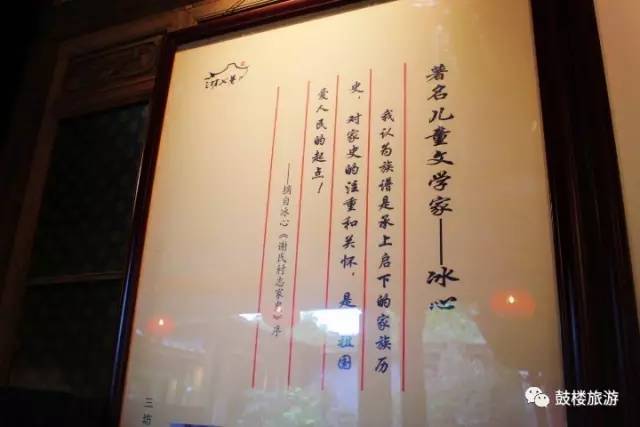 著名儿童文学家——冰心
我认为族谱是承上启下的家族历
史，对家史的注重和关怀，是
祖国
爱人民的起点！
——摘自冰心《谢氏村志家史》序
三坊
鼓楼旅游